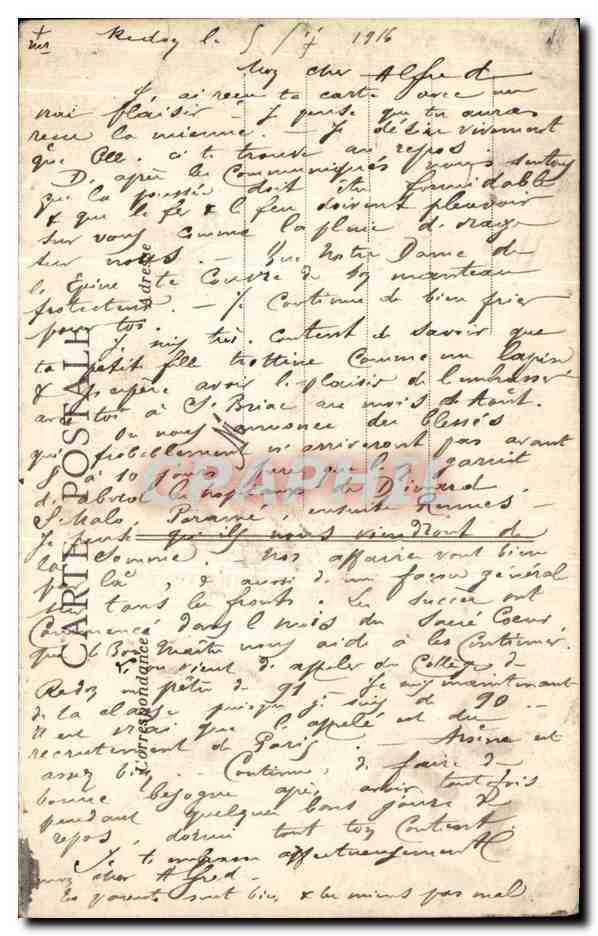 Redon le 5/7 1916
Mon cher Alfred
J'ai reçu ta carte avec un
vrai plaisir - Je pense que tu auras
reçu la mienne. - Je désire vivement
que celle-ci te trouve au repos.
D'après les Communiqués nous sentons
que la poussée doit être formidable
& que le fer & le feu doivent pleuvoir
sur vous comme la pluie d'orage
sur nous. - Que Notre Dame de
l'Epine te couvre de son manteau
protecteur. - Je continue de bien prier
pour toi.
Je suis très content de savoir que
ta petite fille trottine comme un lapin
& j'espère avoir le plaisir de l'embrasser
avec toi à St Briac au mois d'Août.
On nous annonce des blessés
qui probablement n'arriveront pas avant
8 à 10 jours parce que l'on garnit
d'abord les hôpitaux de Dinard
St Malo, Paramé, ensuite Rennes -
Je pense qu'ils nous viendront de
la Somme. Nos affaires vont bien
par là, & aussi d'une façon générale
sur tous les fronts. Les succès ont
commencé dans le mois du Sacré Coeur
que le Bon Maître nous aide à les continuer.
On vient d'appeler du Collège de
Redon un prêtre de 91 - Je suis maintenant
de la classe puisque je suis de 90 -
Il est vrai que l'appelé est du
recrutement de Paris. - Arsène est
assez bien. - Continue de faire de
bonne besogne après avoir toutefois
pendant quelques bons jours de
repos, dormi tout ton content.
Je t'embrasse affectueusement
mon cher Alfred.
tes parents sont bien & les miens pas mal.
CARTE POSTALE
Correspondance
Adresse
CPAPHIL